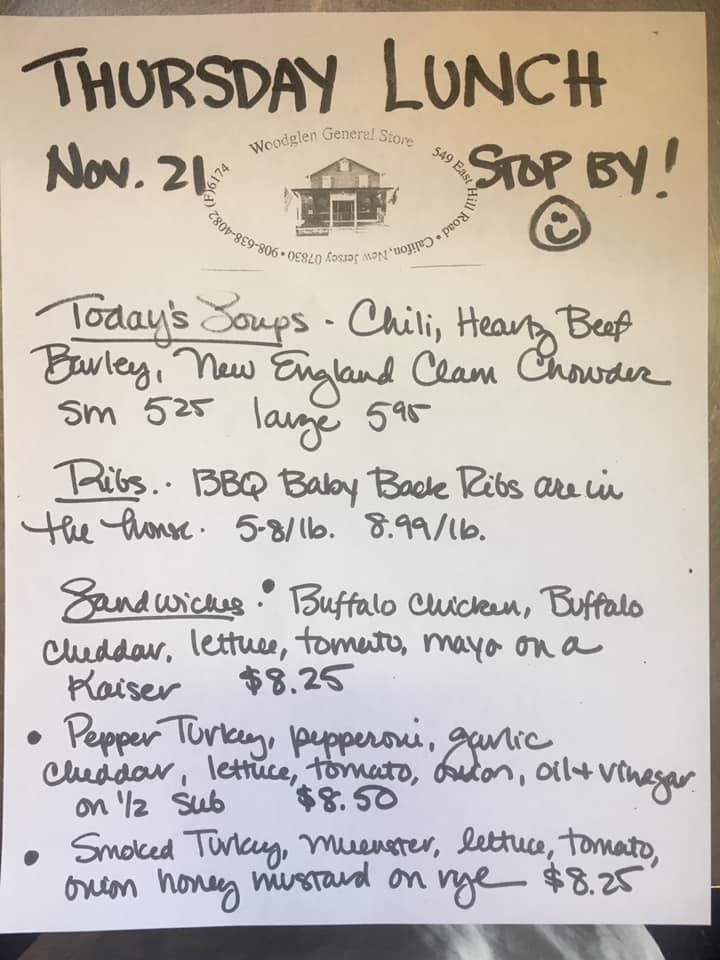 THURSDAY LUNCH
Nov. 21
Woodglen General Store
549 East Hill Road • Califon, New Jersey 07830 • 908-638-4082 (F)6174
STOP BY!
Today's Soups - Chili, Hearty Beef
Barley, New England Clam Chowder
sm 5 25 large 5 95
Ribs.. BBQ Baby Back Ribs are in
the house. 5-8/lb. 8.99/lb.
Sandwiches: Buffalo Chicken, Buffalo
cheddar, lettuce, tomato, mayo on a
Kaiser $8.25
• Pepper Turkey, pepperoni, garlic
cheddar, lettuce, tomato, onion, oil + vinegar
on 1/2 sub $8.50
• Smoked Turkey, muenster, lettuce, tomato,
onion honey mustard on rye $8.25